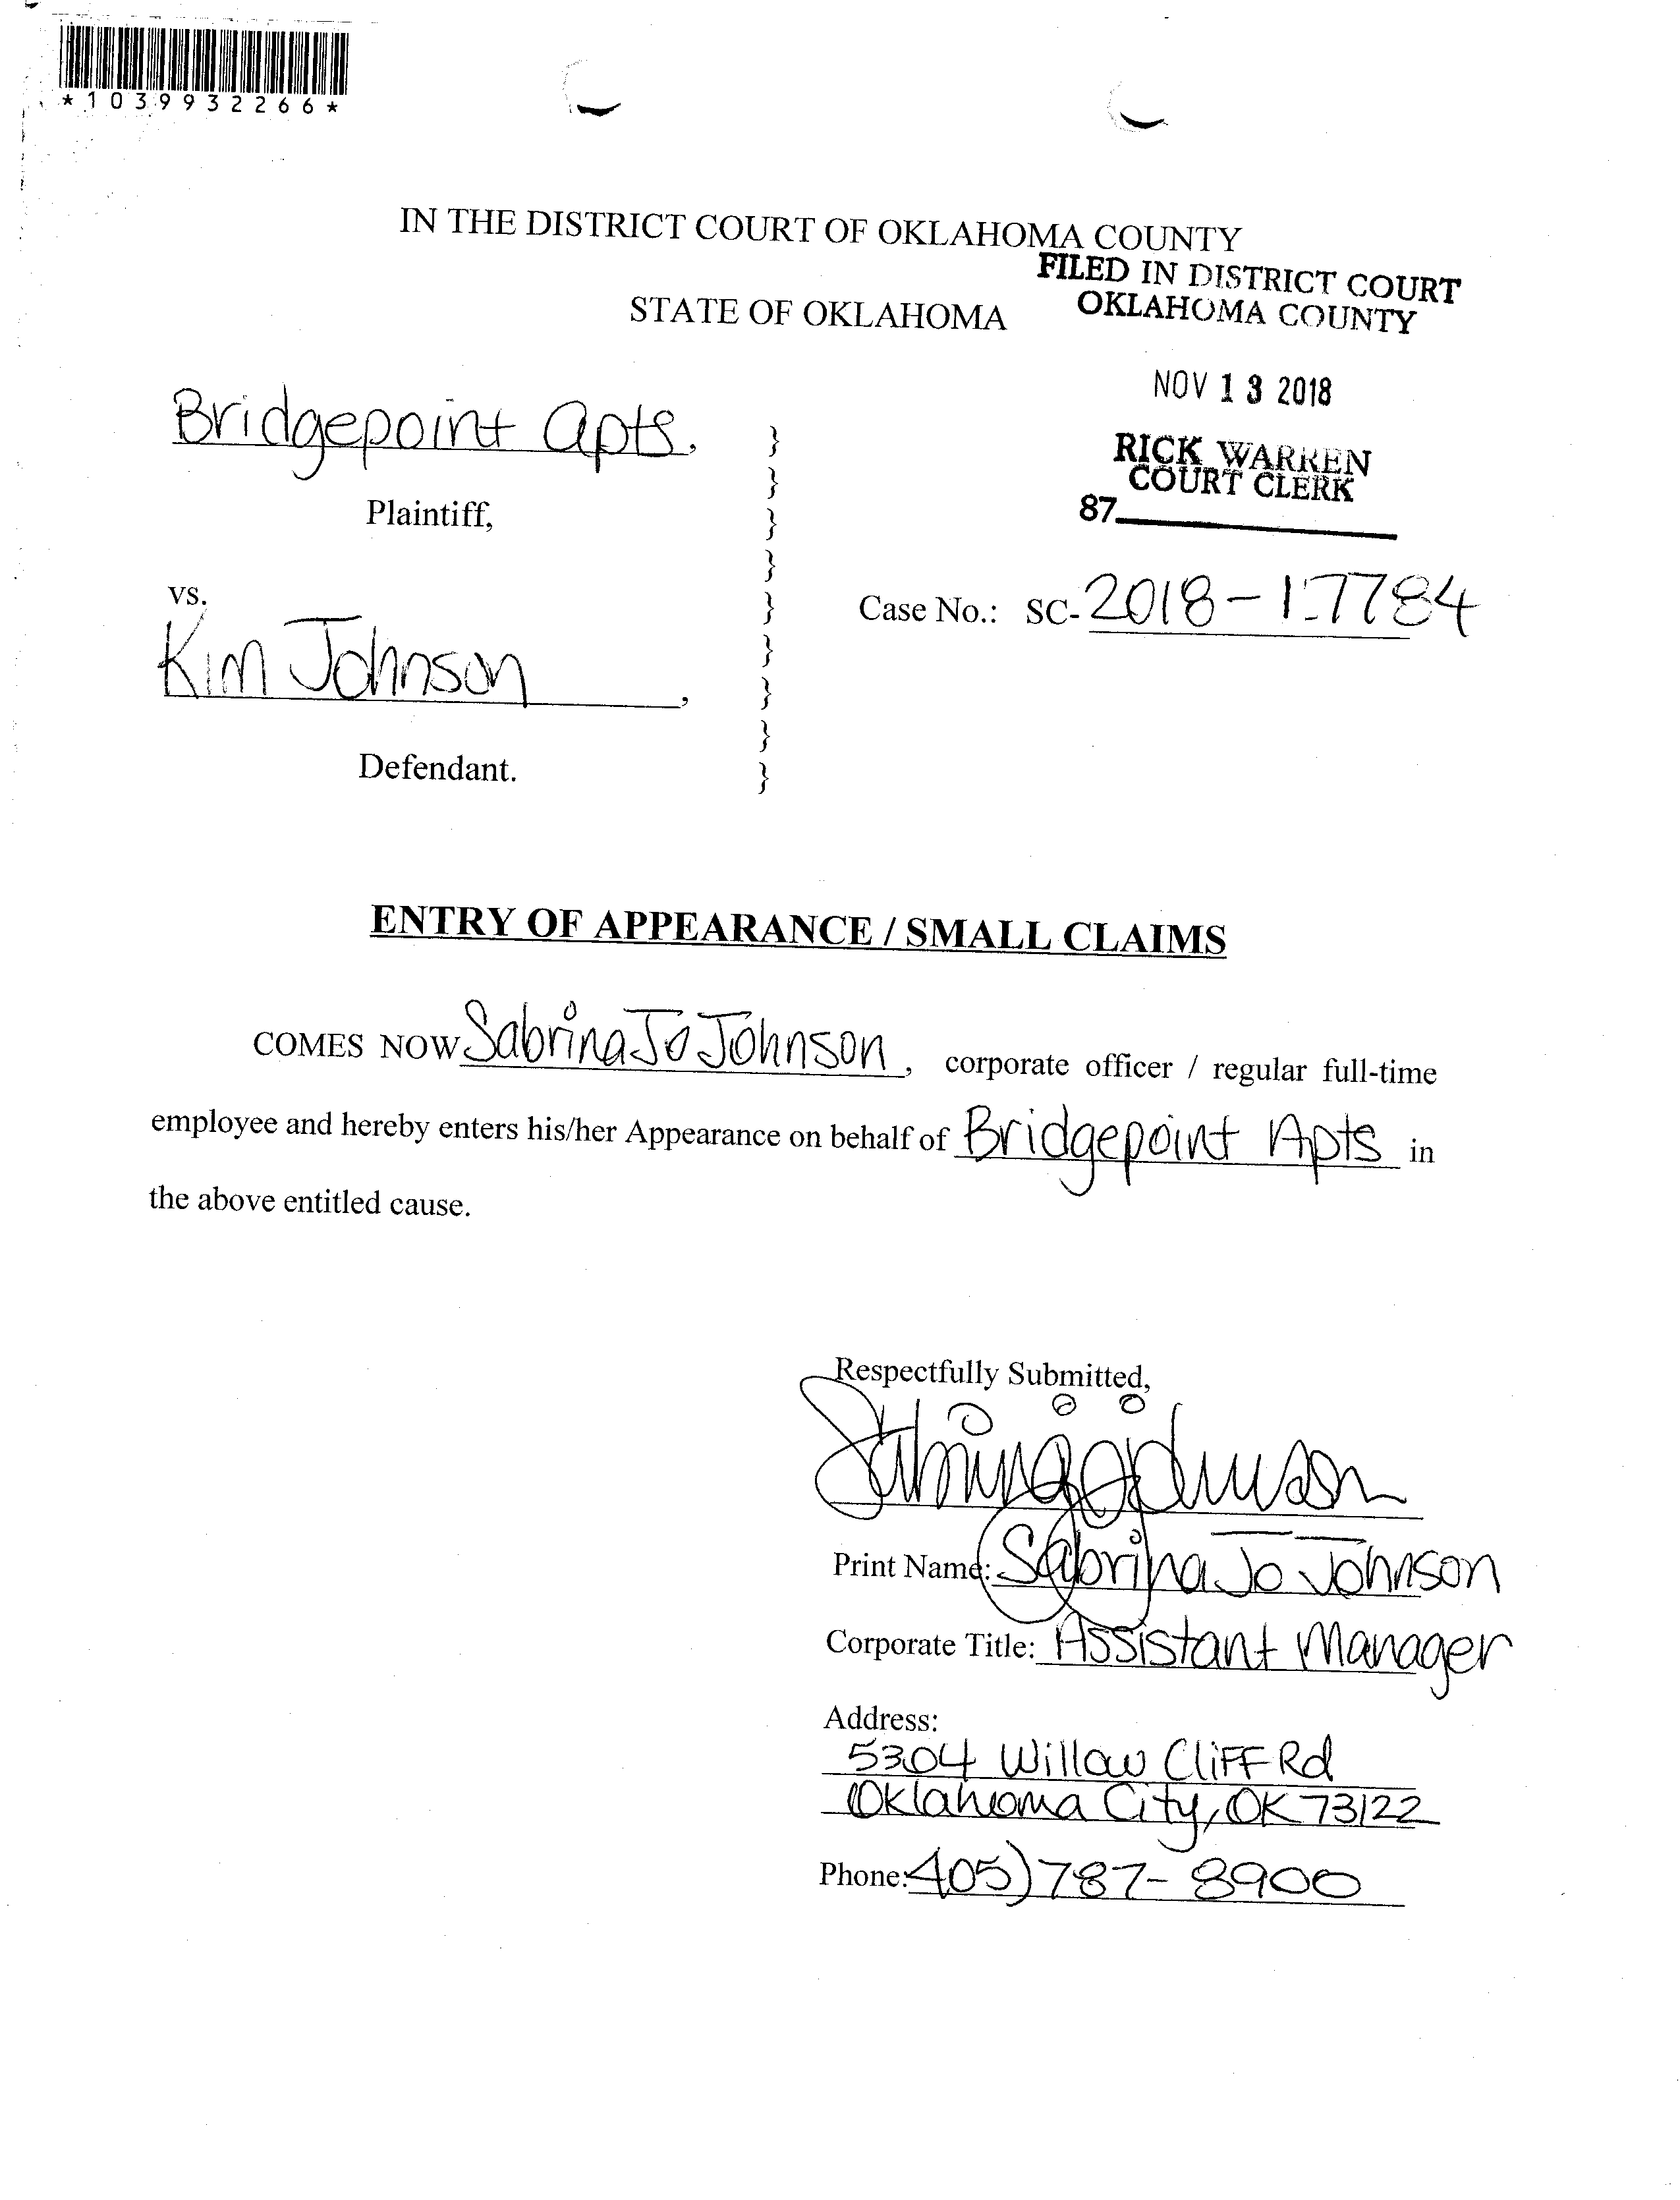 *1039932266*
IN THE DISTRICT COURT OF OKLAHOMA COUNTY
FILED IN DISTRICT COURT
OKLAHOMA COUNTY
STATE OF OKLAHOMA
NOV 13 2018
RICK WARREN
COURT CLERK
87
Bridgepoint Apts.
}
}
Plaintiff,
}
}
vs.
}
Case No.: SC-2018-17784
}
Kim Johnson,
}
}
Defendant.
}
ENTRY OF APPEARANCE / SMALL CLAIMS
COMES NOW Sabrina Jo Johnson, corporate officer / regular full-time
employee and hereby enters his/her Appearance on behalf of Bridgepoint Apts in
the above entitled cause.
Respectfully Submitted,
Sabrina Jo Johnson
Print Name: Sabrina Jo Johnson
Corporate Title: Assistant Manager
Address:
5304 Willow Cliff Rd
Oklahoma City, OK 73122
Phone: 405) 787-8900